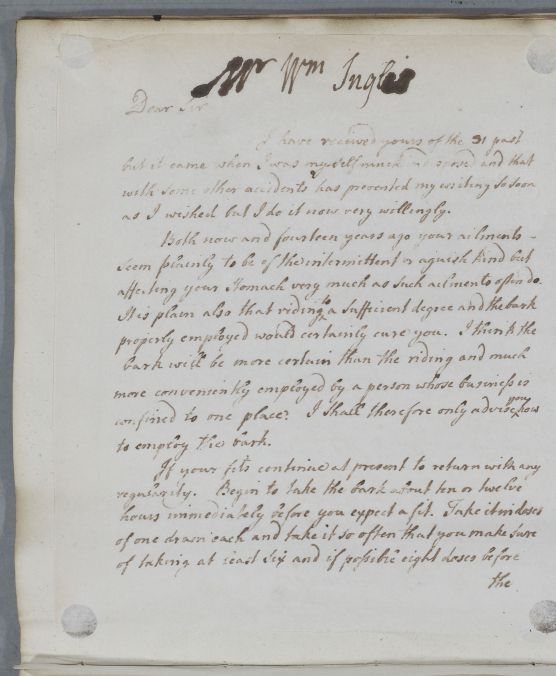 Mr Wm Inglis
Dear Sir
I have received yours of the 31 past
but it came when I was my self much indisposed and that
with some other accidents has prevented my writing so soon
as I wished but I do it now very willingly.
Both now and fourteen years ago your ailments
seem plainly to be of the intermittent or aguish kind but
affecting your Stomach very much as such ailments often do.
It is plain also that riding to a sufficient degree and the bark
properly employed would certainly cure you. I think the
bark will be more certain than the riding and much
more conveniently employed by a person whose business is
confined to one place. I shall therefore only advise you how
to employ the bark.
If your fits continue at present to return with any
regularity. Begin to take the bark about ten or twelve
hours immediately before you expect a fit. Take it in doses
of one dram each and take it so often that you make sure
of taking at least six and if possible eight doses before
the